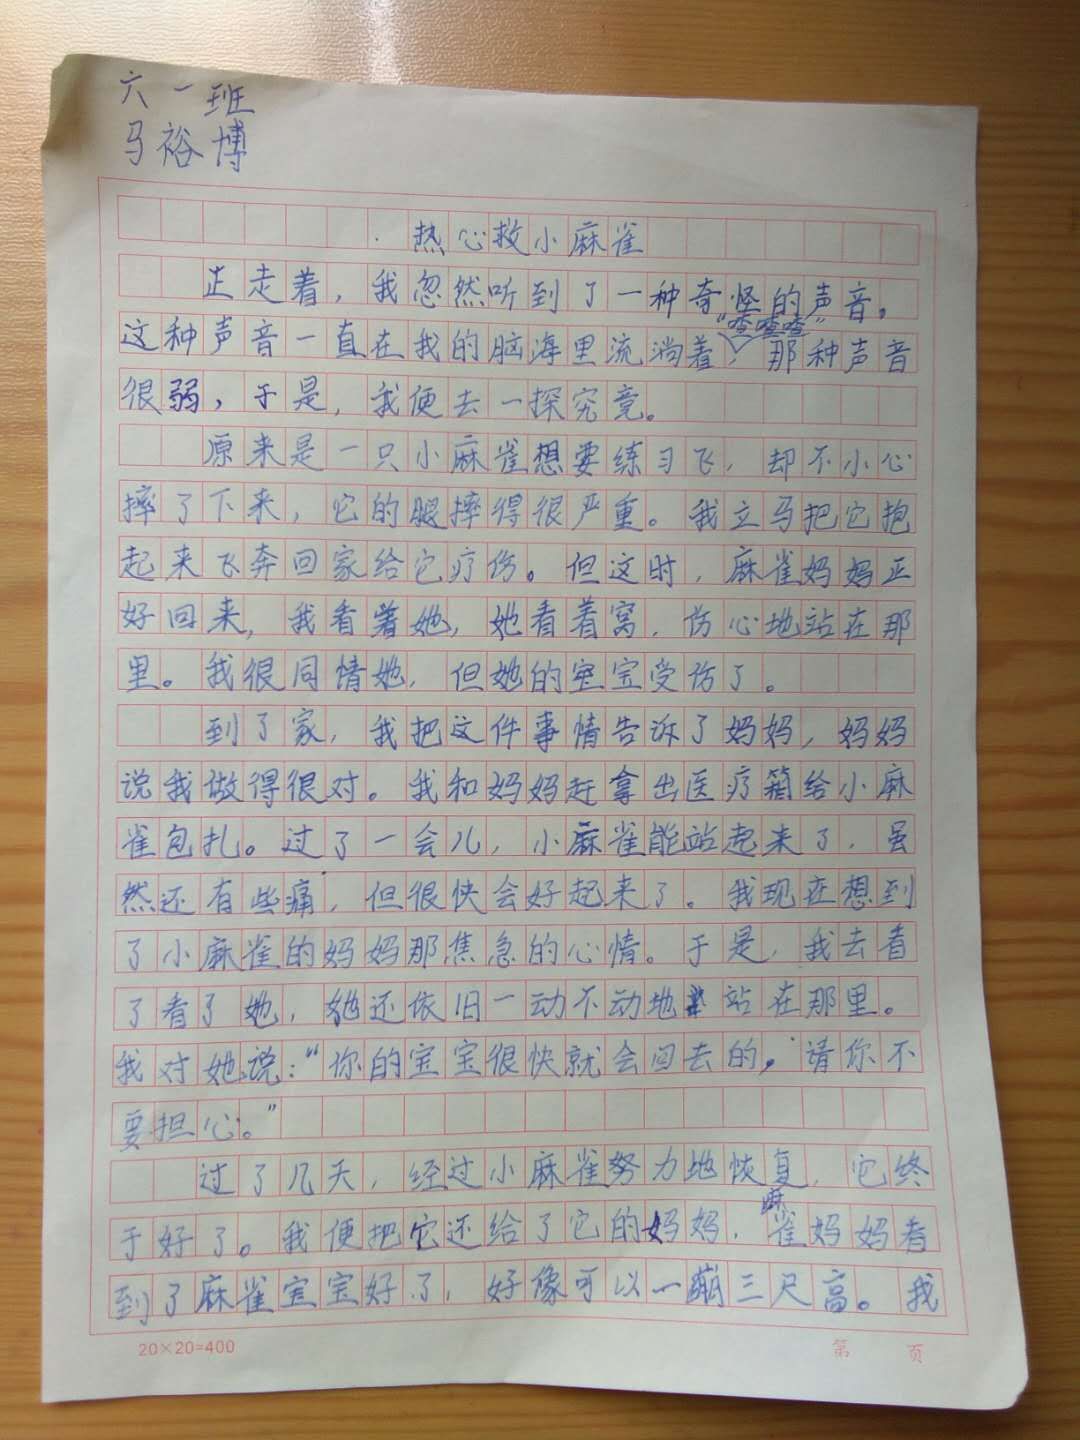 六一班
马裕博
热心救小麻雀
正走着，我忽然听到了一种奇怪的声音。
这种声音一直在我的脑海里流淌着“喳喳喳”，那种声音
很弱，于是，我便去一探究竟。
原来是一只小麻雀想要练习飞，却不小心
摔了下来，它的腿摔得很严重。我立马把它抱
起来飞奔回家给它疗伤。但这时，麻雀妈妈正
好回来，我看着她，她看着窝，伤心地站在那
里。我很同情她，但她的宝宝受伤了。
到了家，我把这件事情告诉了妈妈，妈妈
说我做得很对。我和妈妈赶拿出医疗箱给小麻
雀包扎。过了一会儿，小麻雀能站起来了，虽
然还有些痛，但很快会好起来了。我现在想到
了小麻雀的妈妈那焦急的心情。于是，我去看
了看了她，她还依旧一动不动地站在那里。
我对她说：“你的宝宝很快就会回去的，请你不
要担心。”
过了几天，经过小麻雀努力地恢复，它终
于好了。我便把它还给了它的妈妈，麻雀妈妈看
到了麻雀宝宝好了，好像可以一蹦三尺高。我
20×20=400
第 页